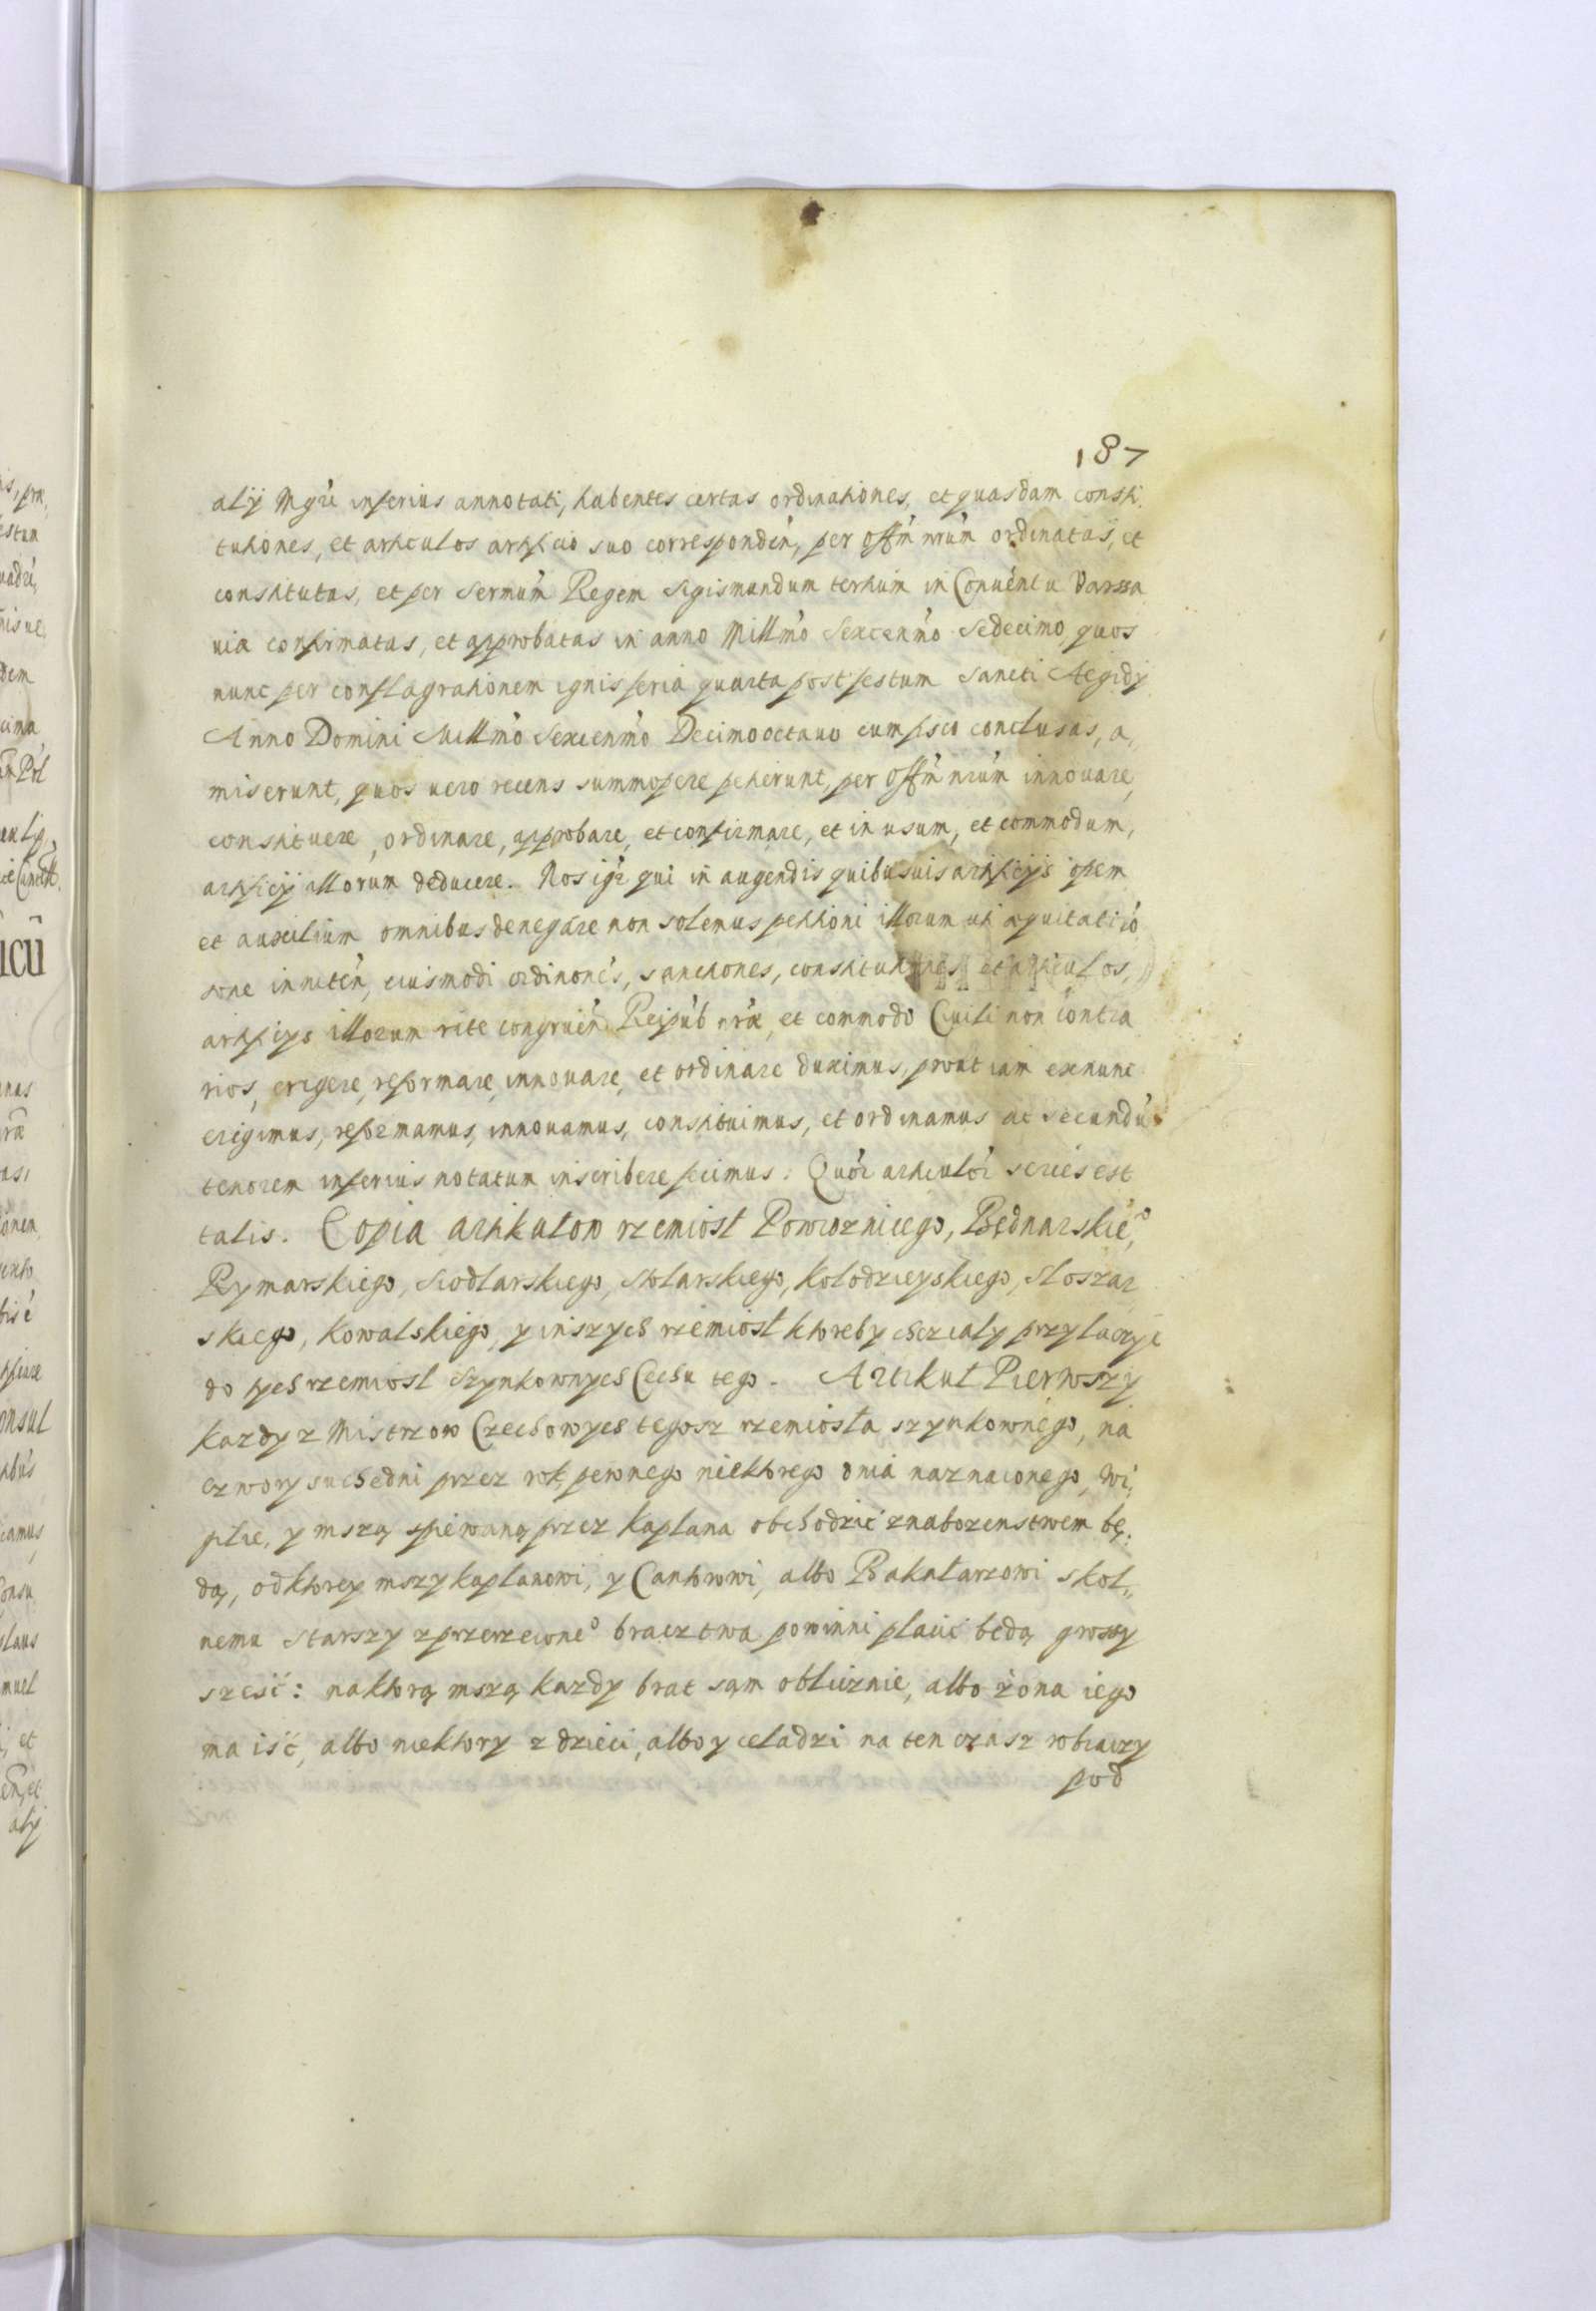 187
alÿ Mgri inferius annotati, habentes certas ordinationes, et quasdam consti,
tutiones, et articulos artificio suo corresponden, per Offm nrum ordinatas, et
constitutas, et per Sermum Regem Sigismundum tertium in Conuentu Varssa
uia confirmatas, et approbatas in anno Millmo Sexcenmo Sedecimo, quos
nunc per conflagrationem ignis feria quarta post festum Sancti Aegidÿ
Anno Domini Millmo Sexcenmo Decimo octauo cum conclusas, a,
miserunt, quos uero recens summopere petierunt, per Offm nrum innouare,
constituere, ordinare, approbare, et confirmare, et in usum, et commodum,
artificÿ illorum deducere. Nos igr qui in augendis quibusuis artificÿs opem
et auxilium omnibus denegare non solemus petitioni illorum uti aequitati
innten, eiusmodi ordinones, sanctiones, constitutiones et articulos,
artificÿs illorum rite congruen Reipub nrae, et commodo Ciuili non contra
rios, erigere, reformare, innouare, et ordinare duximus, prout iam exnunc
erigimus, reformamus, innouamus, constituimus, et ordinamus ac secundu
tenorem inferius notatum inscribere fecimus. Quor articulor series est
talis. Copia artikułow rzemiosł Powrozniczego, Bednarskie°,
Rymarskiego, Siodlarskiego, Stolarskiego, Kołodzieyskiego, Slosar
skiego, Kowalskiego, y inszych rzemiosł ktoreby chciały przyłaczyc
do tych rzemiosł Szynkownych Cechu tego. Artikuł Pierwszy
Kazdy z Mistrzow Czechowych tegosz rzemiosła szynkownego, na
czwory suchedni przez rok, pewnego niektorego dnia naznaczonego, Wi,
ylie, y mszą spiewaną przez Kapłana obchodzić znabozenstwem bę,
dą, odktorey mszy kapłanowi, y Cantorowi, albo Bakałarzowi skol,,
nemu Starszy zprzerzeczone° bractwa powinni płacić będą groszy
szesć: naktorą mszą kazdy brat sąm oblicznie, albo żona iego
ma iść, albo niektory z dzieci, albo y celadzi na ten czasz robiaczy
pod